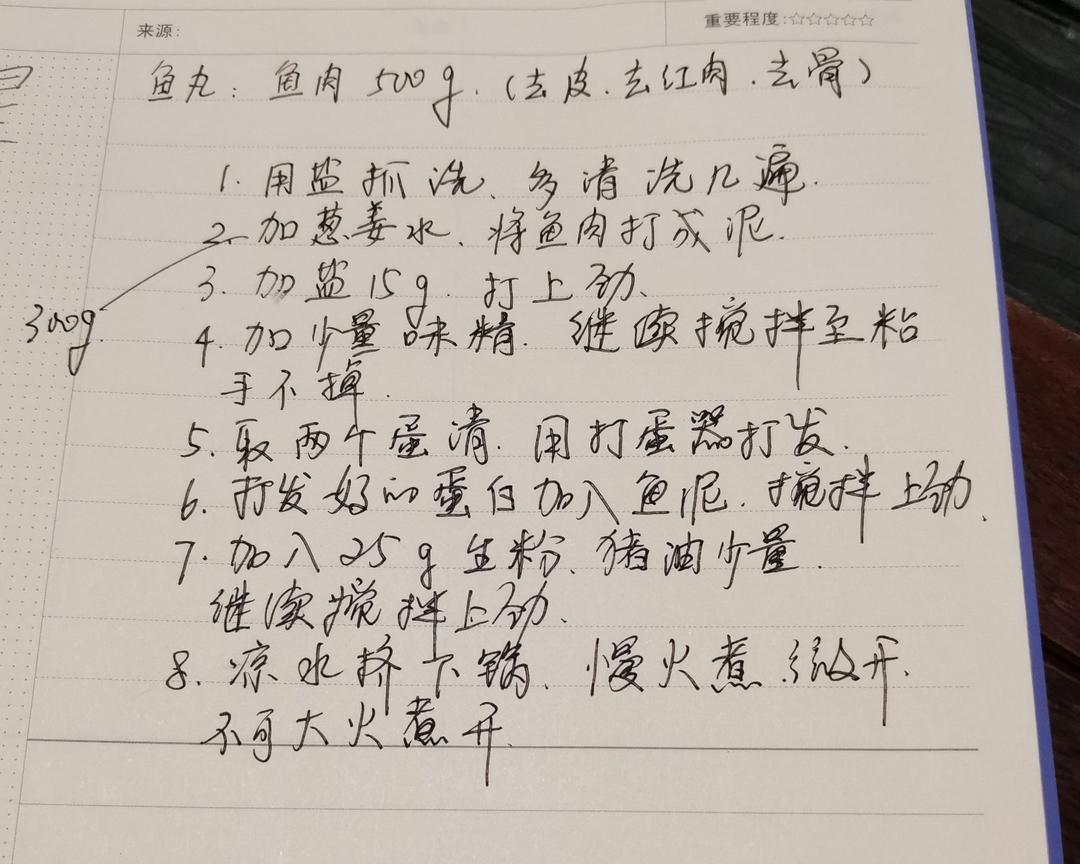 来源:
重要程度:☆☆☆☆☆
鱼丸: 鱼肉 500g. (去皮.去红肉.去骨)
1. 用盐抓洗、多清洗几遍.
2. 加葱姜水、将鱼肉打成泥.
3. 加盐15g. 打上劲、
300g.
4. 加少量味精. 继续搅拌至粘
手不掉.
5. 取两个蛋清. 用打蛋器打发.
6. 打发好的蛋白加入鱼泥. 搅拌上劲、
7. 加入25g生粉、猪油少量.
继续搅拌上劲、
8. 凉水挤下锅、慢火煮微开.
不可大火煮开.